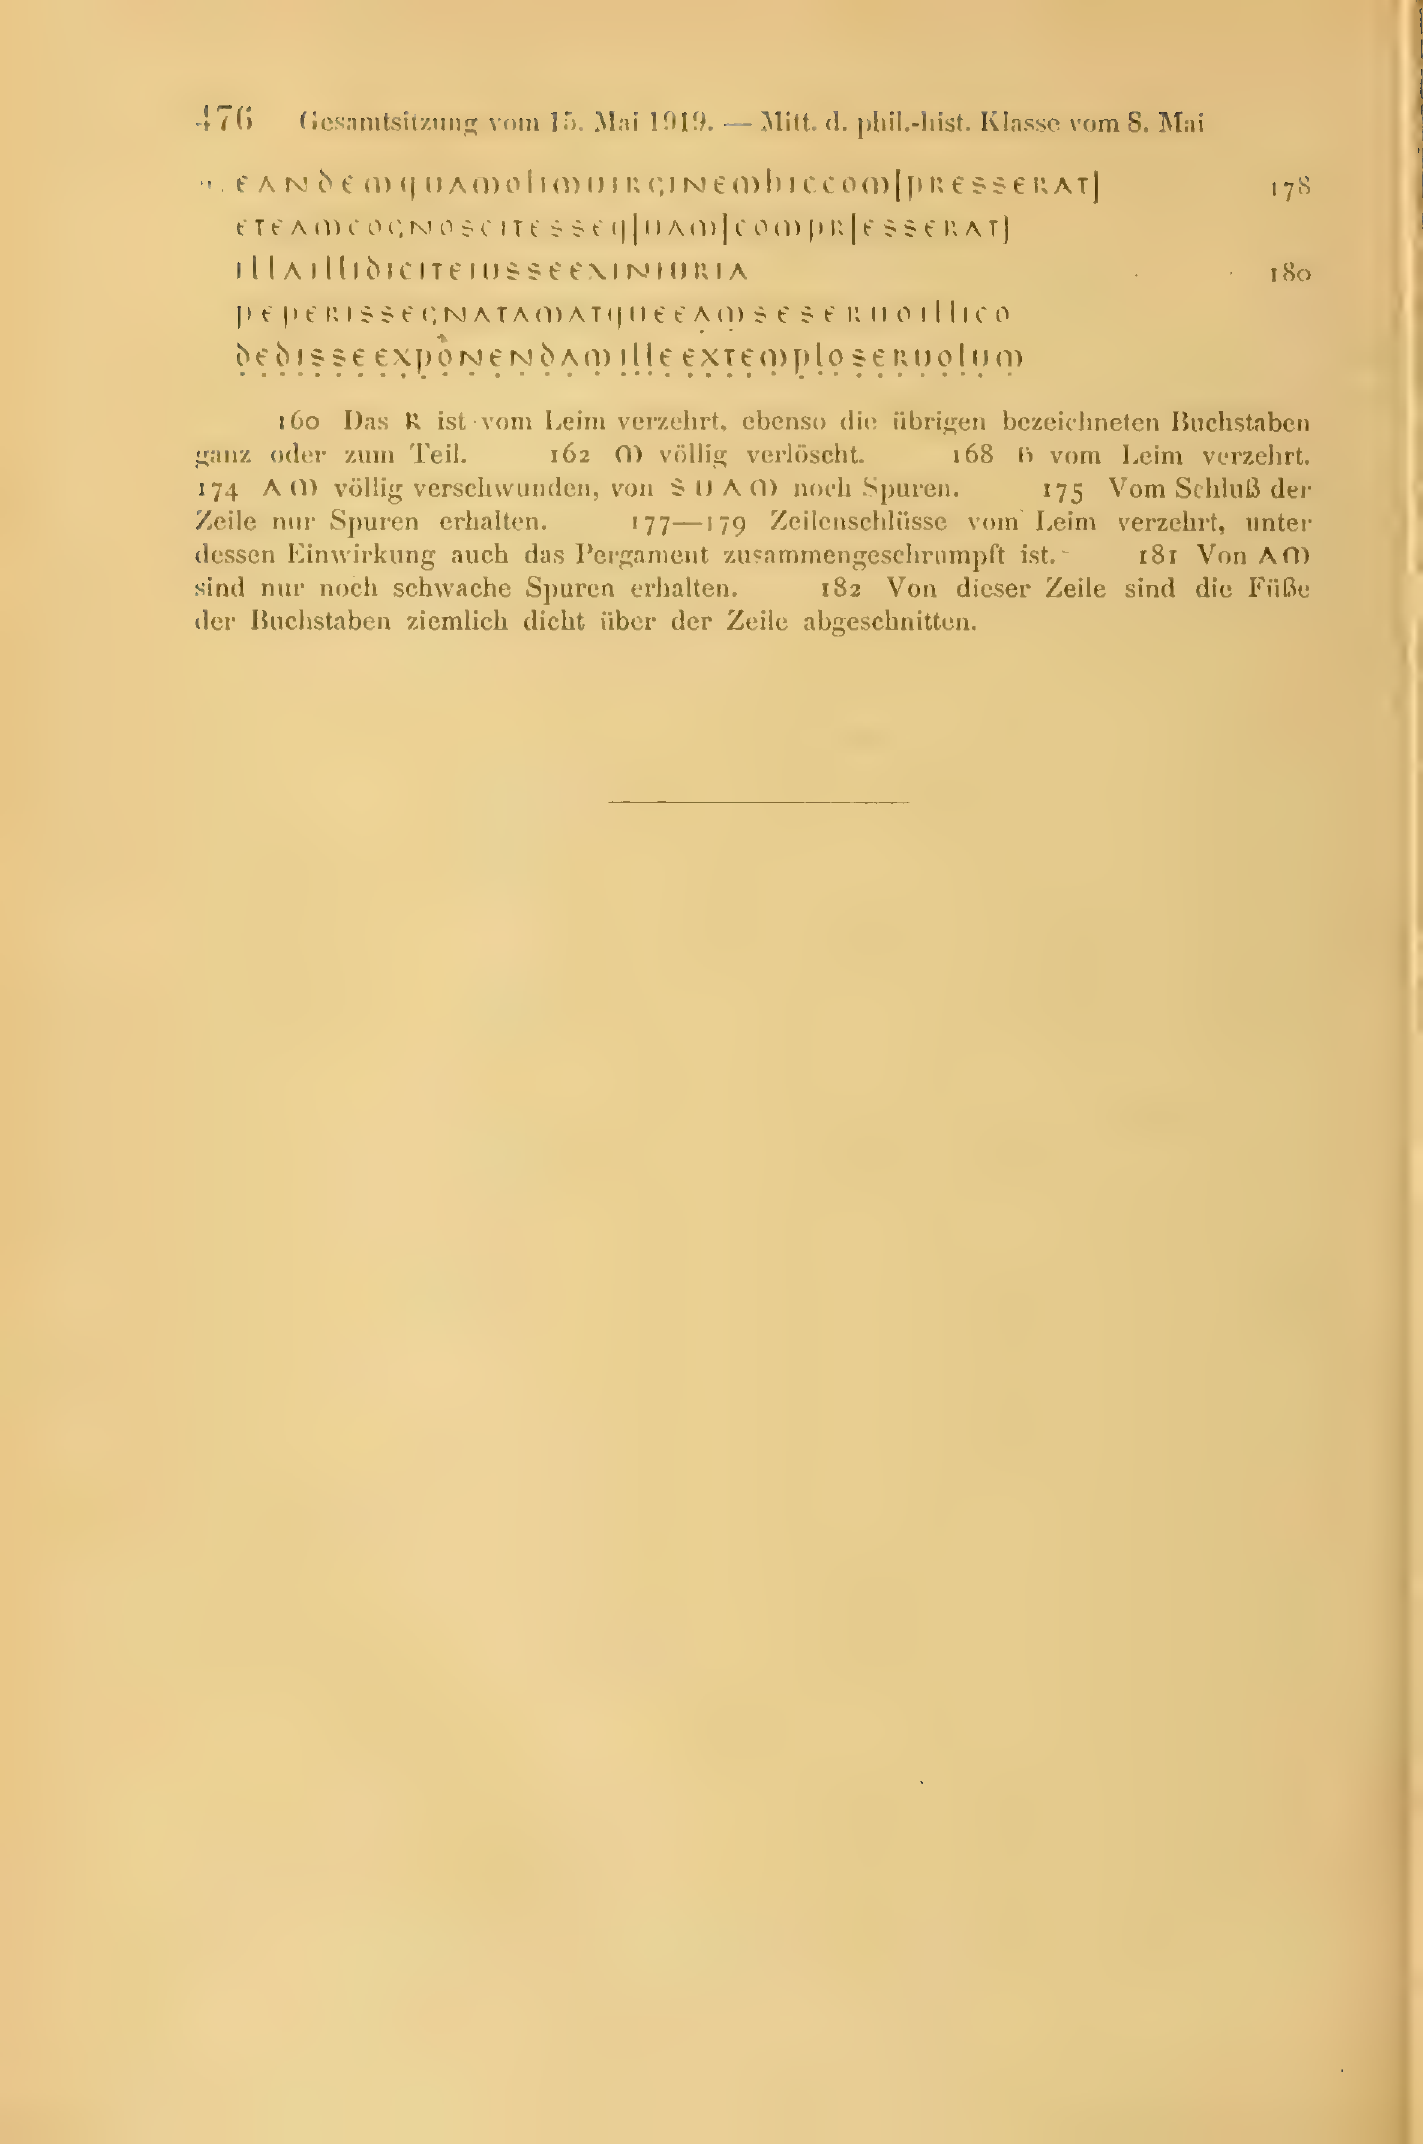 476 Gesamtsitzung vom 15. Mai 1919. — Mitt. d. phil.-hist. Klasse vom 8. Mai
EANDEMQUAMOLIMUIRGINEMHICCOM[PRESSERAT] 178
ETEAMCOGNOSCITESSEQ[UAM]COMPR[ESSERAT]
ILLAILLIDICITEIUSSEEXINIURIA 180
PEPERISSEGNATAMATQUEEAMSESERUOILLICO
DEDISSEEXPONENDAMILLEEXTEMPLOSERUOLUM
160 Das R ist vom Leim verzehrt, ebenso die übrigen bezeichneten Buchstaben
ganz oder zum Teil. 162 M völlig verlöscht. 168 B vom Leim verzehrt.
174 AM völlig verschwunden, von SUAM noch Spuren. 175 Vom Schluß der
Zeile nur Spuren erhalten. 177—179 Zeilenschlüsse vom Leim verzehrt, unter
dessen Einwirkung auch das Pergament zusammengeschrumpft ist. 181 Von AM
sind nur noch schwache Spuren erhalten. 182 Von dieser Zeile sind die Füße
der Buchstaben ziemlich dicht über der Zeile abgeschnitten.